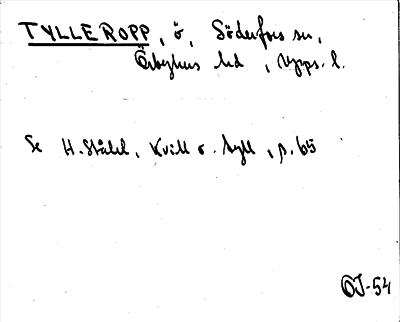 TYLLEROPP, ö, Söderfors sn,
Örbyhus hd, Upps. l.
Se H. Ståhl, Kvill o. tyll, p. 65
OJ-54